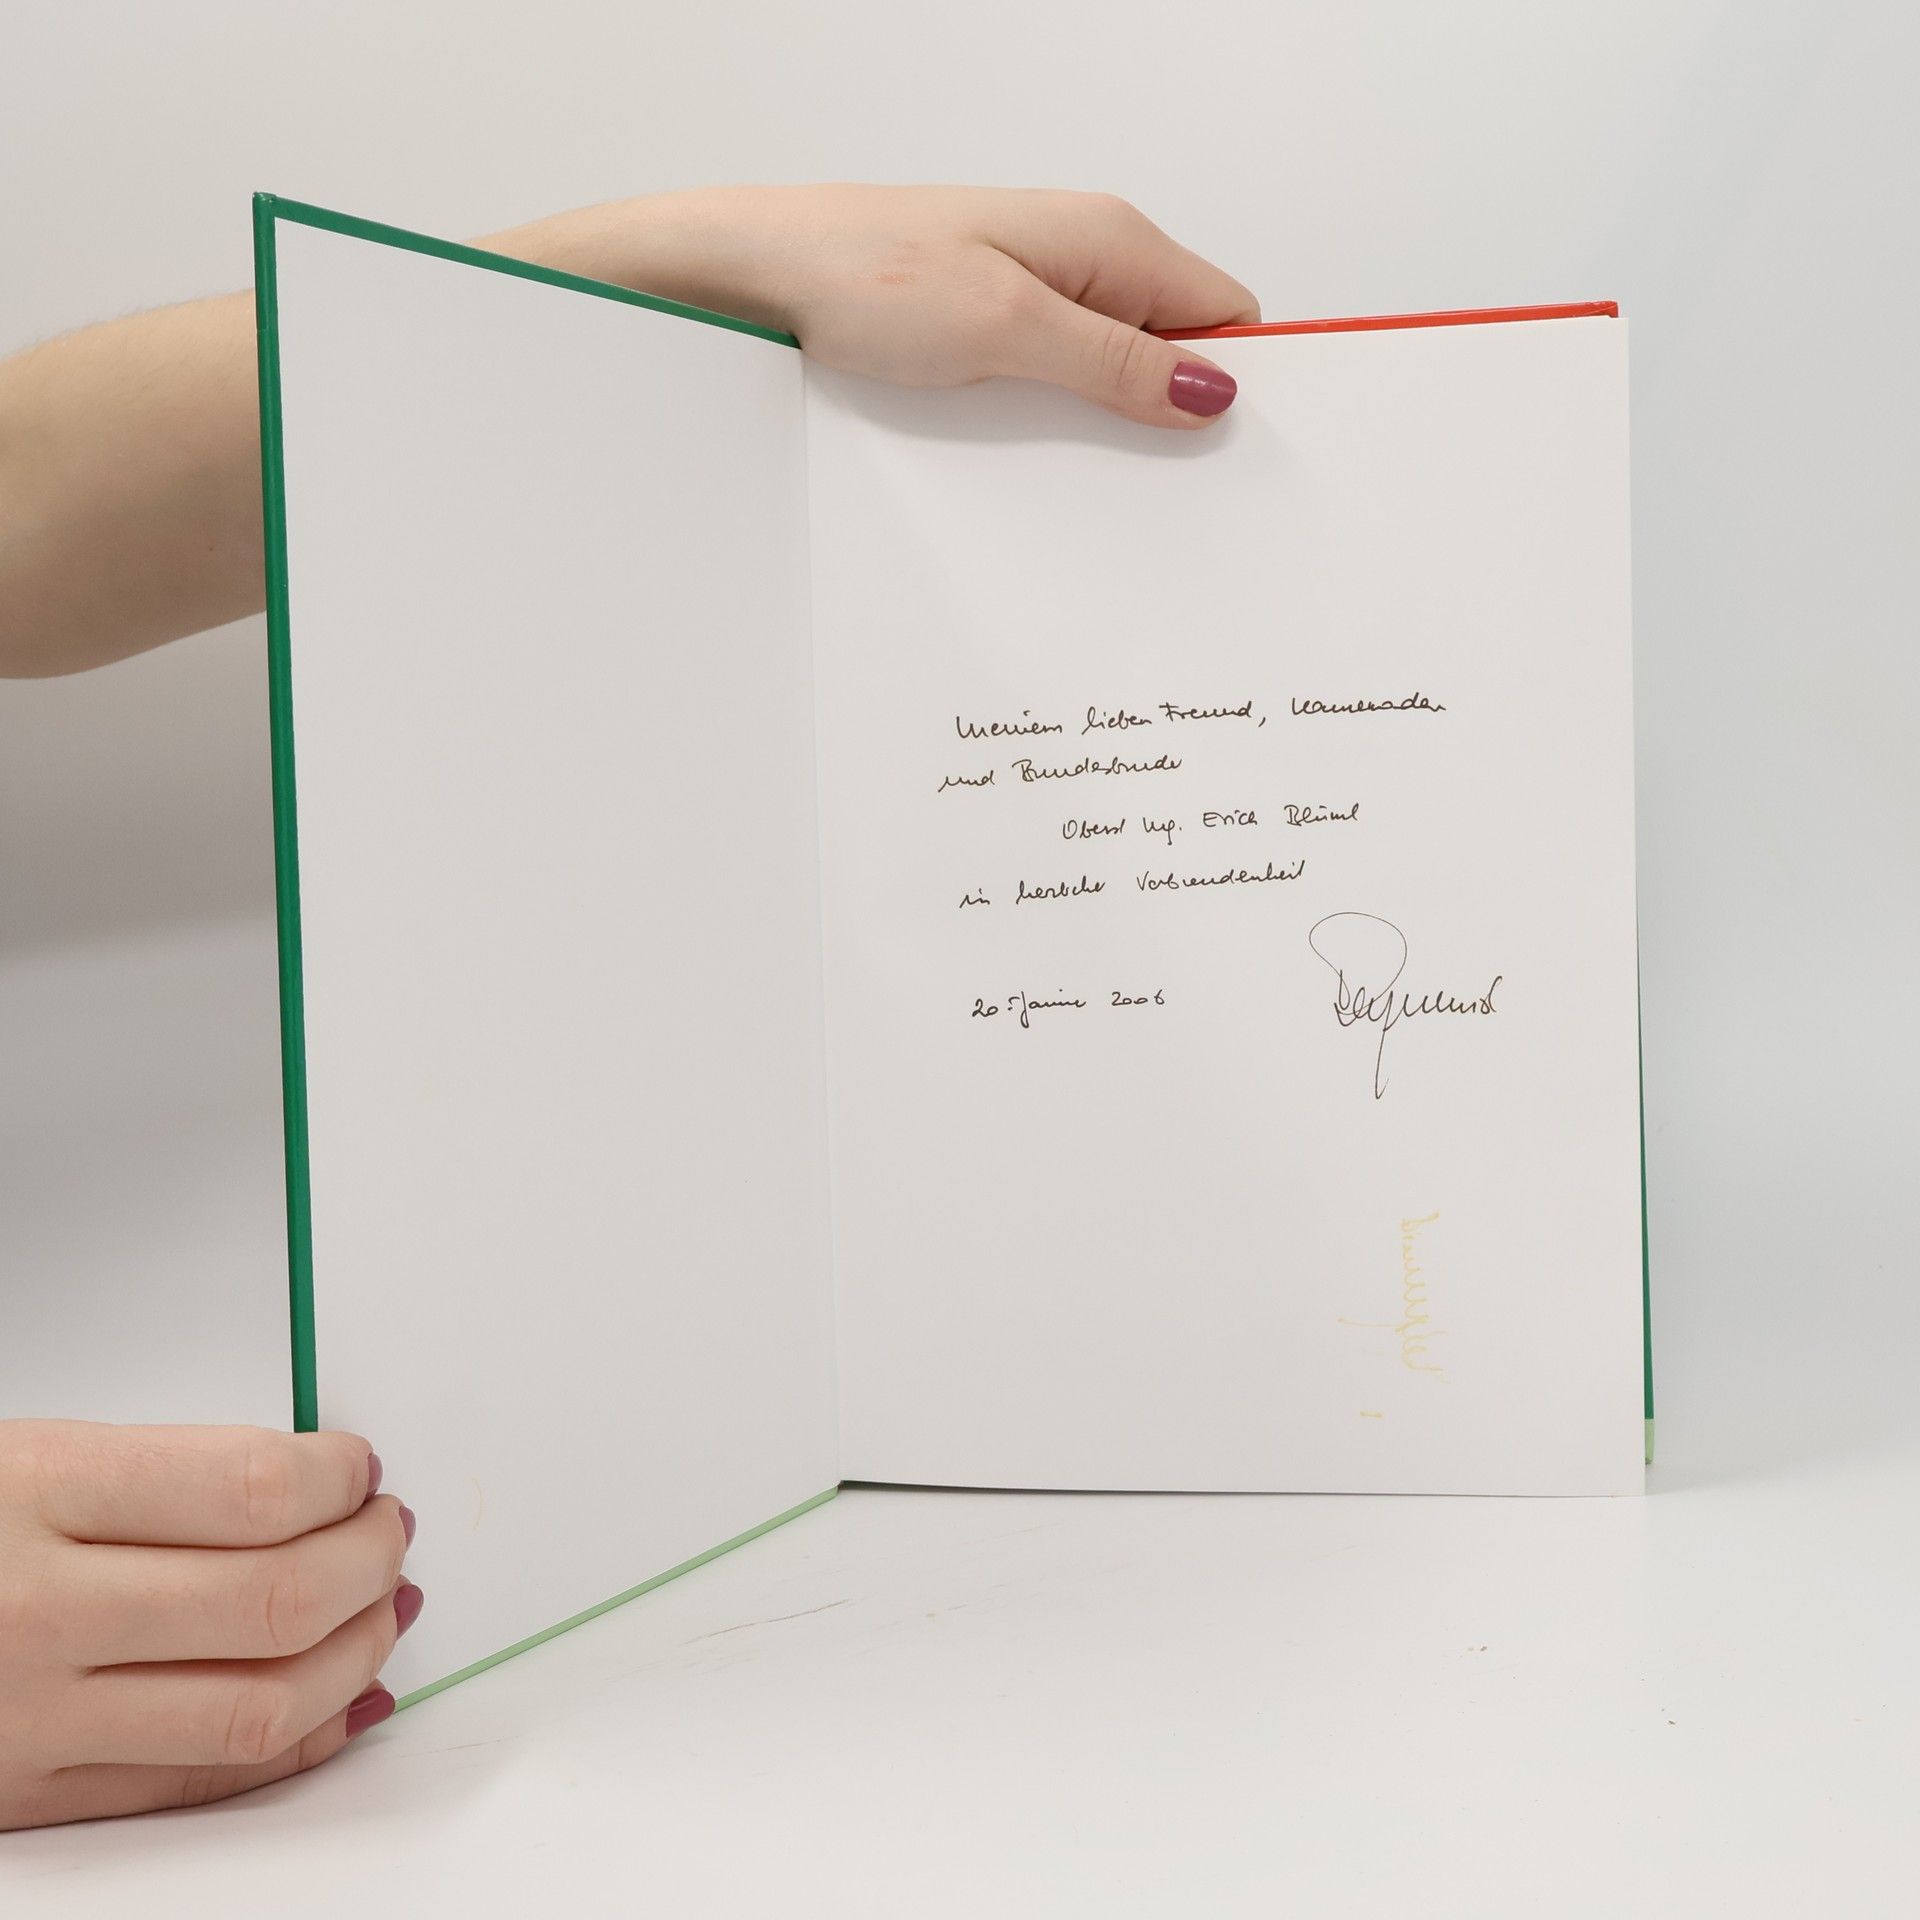 Meinem lieben Freund, Kameraden
und Bundesbruder
Oberst Ing. Erich Blüml
in herzlicher Verbundenheit
20. Jänner 2006